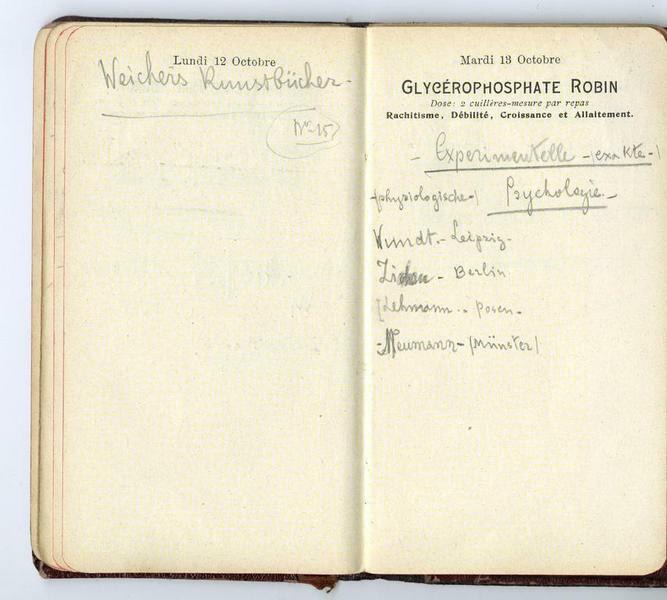 Lundi 12 Octobre
Weichers Kunstbücher.
No 15
Mardi 13 Octobre
GLYCÉROPHOSPHATE ROBIN
Dose: 2 cuillères-mesure par repas
Rachitisme, Débilité, Croissance et Allaitement.
- Experimentelle -(exakte-)
-(physiologische-) Psychologie.-
Wundt.- Leipzig-
- Berlin
(Lehmann.. Posen-
-Meumann- (Münster)